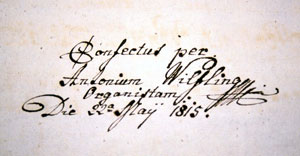 Confectus per
Antonium Wilfling
Organistam
Die 22a Maÿ 1815.